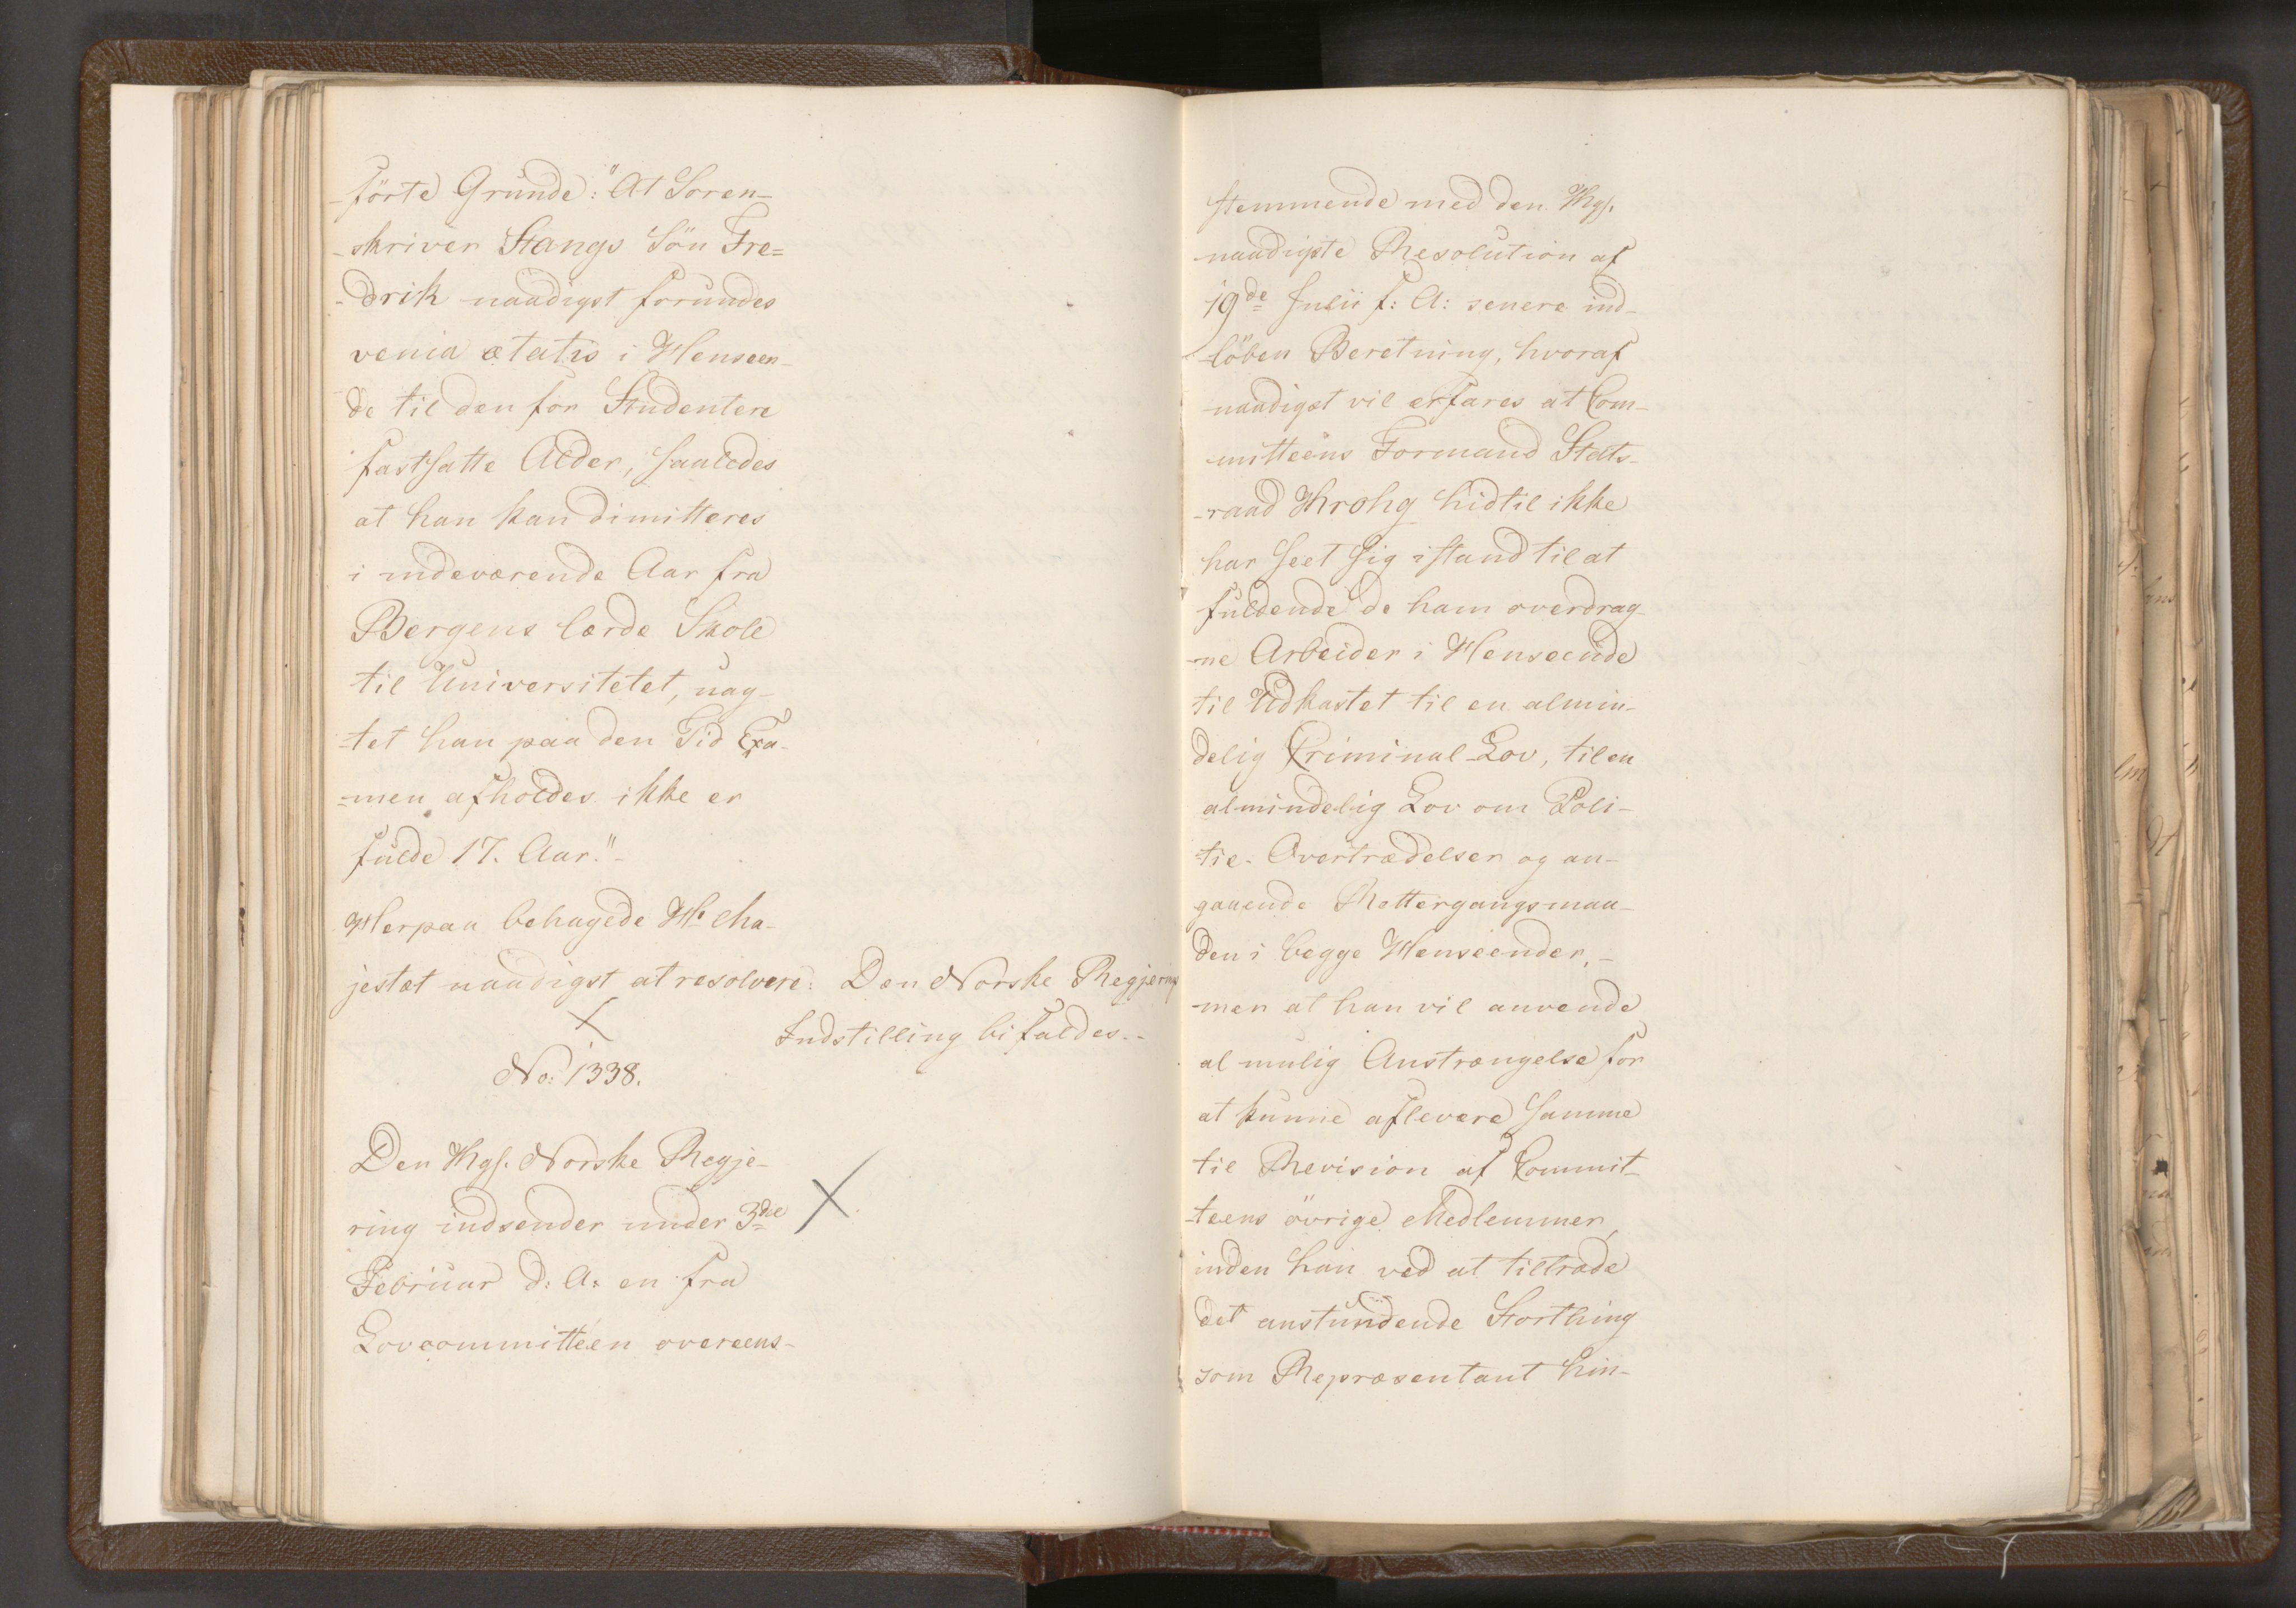 -förte Grunde: "At Soren-
-skriver Stangs Sön Fre=
-drik naadigst forundes
venia ætatis i Henseen-
de til den for Studentere
fastsatte Alder, saaledes
at han kan dimitteres
i indeværende Aar fra
Bergens lærde Skole
til Universitetet, uag-
-tet han paa den Tid Exa-
-men afholdes ikke er
fulde 17. Aar."-
Herpaa behagede H: Ma-
jestæt naadigst at resolvere: Den Norske Regjerings
Indstilling bifaldes.-
No: 1338.
Den Kgs. Norske Regje-
ring indsender under 3die
Februar d: A: en fra
Lovcommitteen overeens-
stemmende med den Kgs.
naadigste Resolution af
19de Julii f: A: senere ind-
-löben Beretning, hvoraf
naadigst vil erfares at Com-
mitteens Formand Stats-
-raad Krohg hidtil ikke
har seet sig istand til at
fuldende de ham overdrag
-ne Arbeider i Henseende
til Udkastet til en almin-
delig Criminal-Lov, til en
almindelig Lov om Poli-
tie-Overtrædelser og an-
gaaende Rettergangsmaa-
den i begge Henseender,-
men at han vil anvende
al mulig Anstrængelse for
at kunne aflevere samme
til Revision af Commit-
-teens övrige Medlemmer,
inden han ved at tiltræde
det anstundende Storthing
som Repræsentant hin-